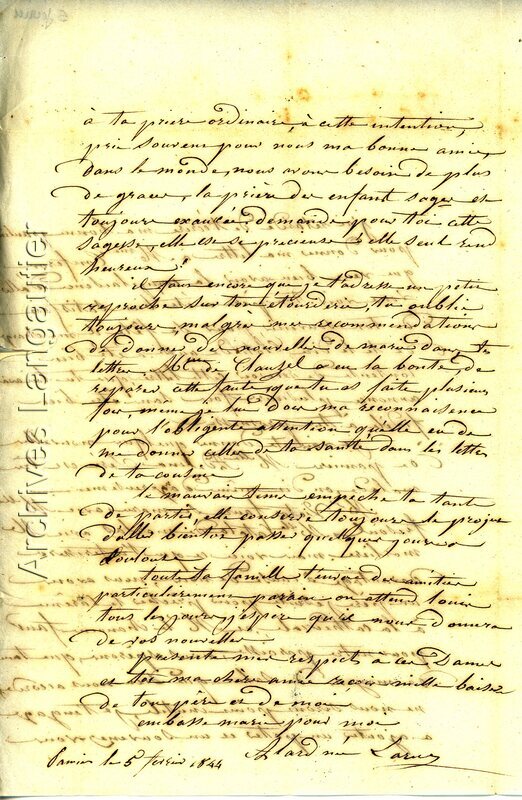 à ta prière ordinaire, à cette intention,
prie souvent pour nous ma bonne amie,
dans le monde, nous avons besoin de plus
de grace, la prière des enfant sages est
toujours exaucée, demande pour toi cette
sagesse, elle est si precieuse & elle seul rend
heureux!
il faut encore que je t'adresse un petit
reproche sur ton étourderie, tu oublie
toujours, malgré mes recommendations
de donne de nouvelle de marie dans tes
lettre, Mme de Clausel a eu la bonté de
reparer cette faute, que tu as faite plusieurs
fois, même je lui dois ma reconnaisence
pour l'obligente attention qu'elle eu de
me donne celles de ta santé dans les lettre
de ta cousine
le mauvais tems empêche ta tante
de partir, elle conserve toujours le projet
d'alle bientot passer quelques jours a
toulouse
toute ta famille t'envoie des amitiés
particulierement parain on attend louis
tous les jours, j'espère qu'il nous donnera
de vos nouvelles
présente mes respects à ces Dames
et toi ma chère amie recois mille baisers
de ton père et de moi
embasse marie pour moi
Alard née
Pamiers le 5 fevrier 1844
Archives Langautier